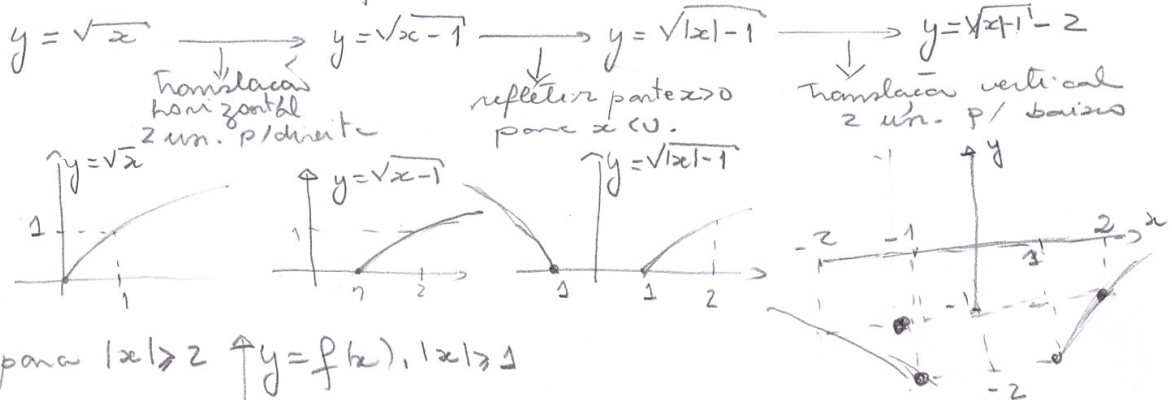 y = √x → y = √x-1 → y = √|x|-1 → y = √|x|-1 - 2
Translação horizontal 2 un. p/ direita
refletir parte x>0 para x<0.
Translação vertical 2 un. p/ baixo
y=√x
1
1
y=√x-1
1
1
2
y=√|x|-1
1
1
2
y
x
-2
-1
1
2
-1
-2
para |x|⩾2
y=f(x), |x|⩾1